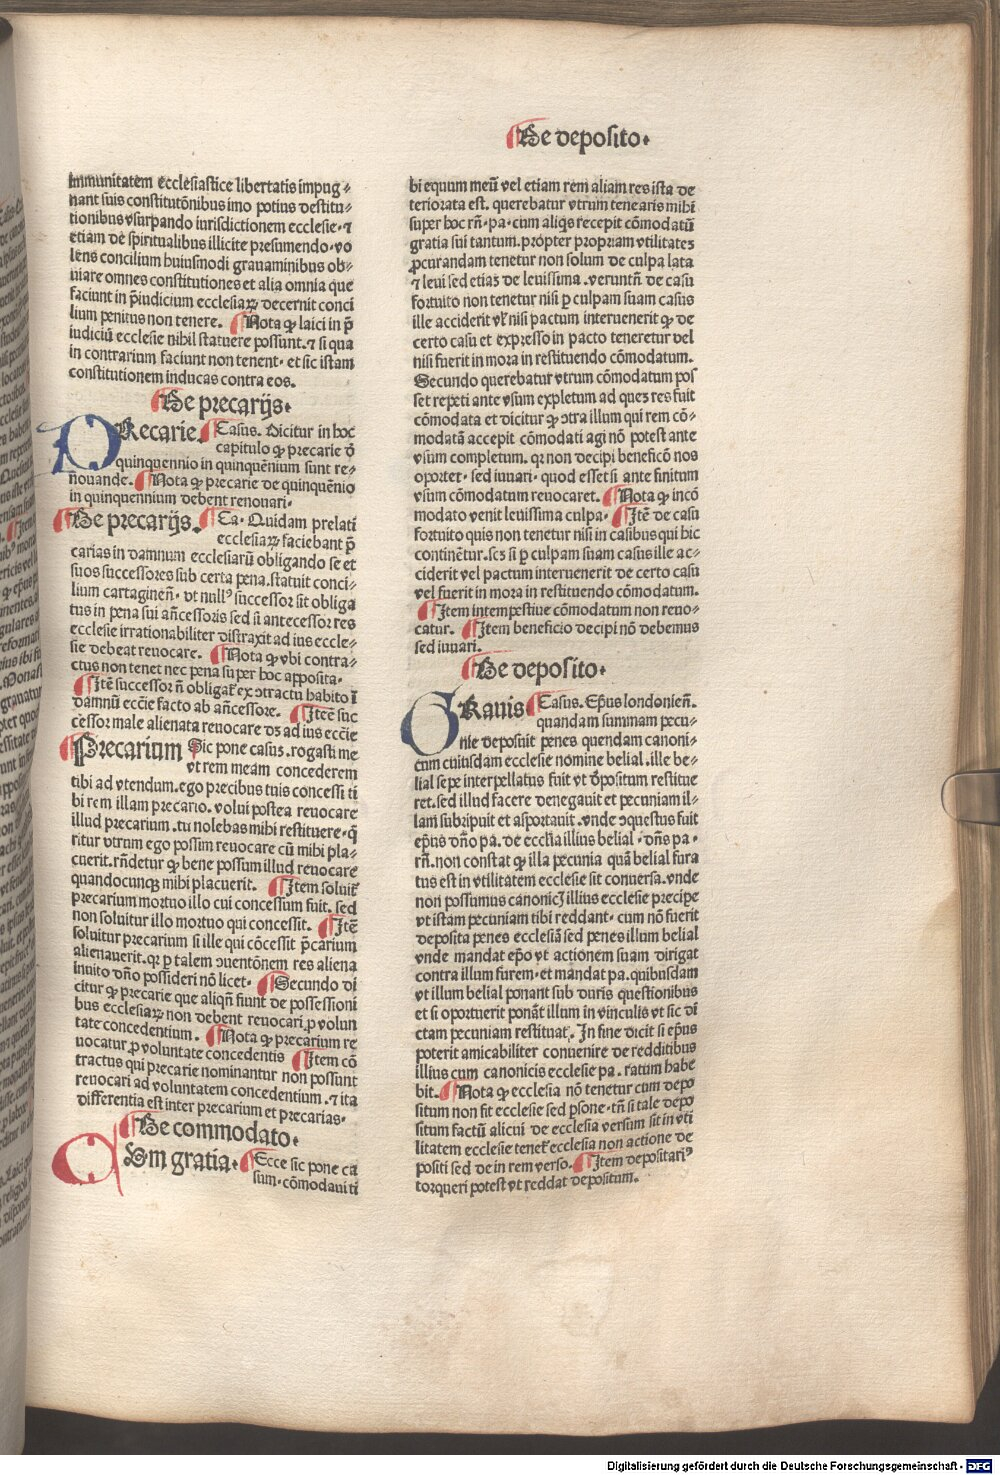 De deposito.
immunitatem ecclesiastice libertatis impug⸗
nant suis constitutōnibus imo potius destitu⸗
tionibus vsurpando iurisdictionem ecclesie. ⁊
etiam de spiritualibus illicite presumendo. vo
lens concilium huiusmodi grauaminibus ob⸗
uiare omnes constitutiones et alia omnia que
faciunt in p̄iudicium ecclesiaꝝ decernit conci
lium penitus non tenere. Nota ꝙ laici in p̄
iudiciū ecclesie nihil statuere possunt. ⁊ si qua
in contrarium faciunt non tenent. et sic istam
constitutionem inducas contra eos.
De precarijs.
PRecarie. Casus. Dicitur in hoc
capitulo ꝙ precarie d̄
quinquennio in quinquēnium sunt re⸗
nouande. Nota ꝙ precarie de quinquēnio
in quinquennium debent renouari.
De precarijs. Ca. Quidam prelati
ecclesiaꝝ faciebant p̄
carias in damnum ecclesiarū obligando se et
suos successores sub certa pena. statuit conci⸗
lium cartagineñ. vt nullꝰ successor sit obliga
tus in pena sui añcessoris sed si antecessor res
ecclesie irrationabiliter distraxit ad ius eccle⸗
sie debeat reuocare. Nota ꝙ vbi contra⸗
ctus non tenet nec pena super hoc apposita.
Itē successor ñ obligat̄ ex ↄtractu habito ī
damnū eccīe facto ab añcessore. Itē suc
cessor male alienata reuocare dꝫ ad ius eccīe
Precarium Sic pone casus. rogasti me
vt rem meam concederem
tibi ad vtendum. ego precibus tuis concessi ti
bi rem illam precario. volui postea reuocare
illud precarium. tu nolebas mihi restituere. q̄
ritur vtrum ego possim reuocare cū mihi pla⸗
cuerit. rñdetur ꝙ bene possum illud reuocare
quandocunqꝫ mihi placuerit. Item soluit̄
precarium mortuo illo cui concessum fuit. sed
non soluitur illo mortuo qui concessit. Itē
soluitur precarium si ille qui cōcessit p̄carium
alienauerit. qꝛ p talem ↄuentōnem res aliena
inuito dño possideri nō licet. Secundo di
citur ꝙ precarie que aliqñ fiunt de possessioni
bus ecclesiaꝝ non debent reuocari ꝓ volun
tate concedentium. Nota ꝙ precarium re
uocatur ꝓ voluntate concedentis Item cō
tractus qui precarie nominantur non possunt
reuocari ad voluntatem concedentium. ⁊ ita
differentia est inter precarium et precarias.
De commodato.
CUm gratia. Ecce sic pone ca
sum. cōmodaui ti
bi equum meū vel etiam rem aliam res ista de
teriorata est. querebatur vtrum tenearis mihi
super hoc rñ. pa. cum aliqs recepit cōmodatū
gratia sui tantum. propter propriam vtilitatē
ꝓcurandam tenetur non solum de culpa lata
⁊ leui sed etiaꝫ de leuissima. veruntñ de casu
fortuito non tenetur nisi ꝑ culpam suam casus
ille acciderit vꝉ nisi pactum interuenerit ꝙ de
certo casu et expresso in pacto teneretur vel
nisi fuerit in mora in restituendo cōmodatum.
Secundo querebatur vtrum cōmodatum pos
set repeti ante vsum expletum ad ques res fuit
cōmodata et dicitur ꝙ ↄtra illum qui rem cō⸗
modatā accepit cōmodati agi nō potest ante
vsum completum. qꝛ non decipi beneficō nos
oporter. sed iuuari. quod esset si ante finitum
vsum cōmodatum reuocaret. Nota ꝙ incō
modato venit leuissima culpa. Itē de casu
fortuito quis non tenetur nisi in casibus qui hic
continētur. scꝫ si ꝑ culpam suam casus ille ac⸗
ciderit vel pactum interuenerit de certo casu
vel fuerit in mora in restituendo cōmodatum.
Item intempestiue cōmodatum non reuo⸗
catur. Item beneficio decipi nō debemus
sed iuuari.
De deposito.
GRauis Casus. Ep̄us londonieñ.
quandam summam pecu⸗
nie deposuit penes quendam canoni⸗
cum cuiusdam ecclesie nomine belial. ille be⸗
lial sepe interpellatus fuit vt d̄positum restitue
ret. sed illud facere denegauit et pecuniam il⸗
lam subripuit et asportauit. vnde ↄquestus fuit
ep̄us dño pa. de eccīia illius belial. dñs pa.
rñ. non constat ꝙ illa pecunia quā belial fura
tus est in vtilitatem ecclesie sit conuersa. vnde
non possumus canonicꝭ illius ecclesie precipe
vt istam pecuniam tibi reddant. cum nō fuerit
deposita penes ecclesiā sed penes illum belial
vnde mandat ep̄o vt actionem suam dirigat
contra illum furem. et mandat pa. quibusdam
vt illum belial ponant sub duris questionibus
et si oportuerit ponāt illum in vinculis vt sic di
ctam pecuniam restituat. In fine dicit si ep̄us
poterit amicabiliter conuenire de redditibus
illius cum canonicis ecclesie pa. ratum habe
bit. Nota ꝙ ecclesia nō tenetur cum depo
situm non fit ecclesie sed ꝑsone. tñ si tale depo
situm factū alicui de ecclesia versum sit in vti
litatem ecclesie tenet̄ ecclesia non actione de
positi sed de in rem verso. Item depositariꝰ
torqueri potest vt reddat depositum.
Digitalisierung gefördert durch die Deutsche Forschungsgemeinschaft - DFG